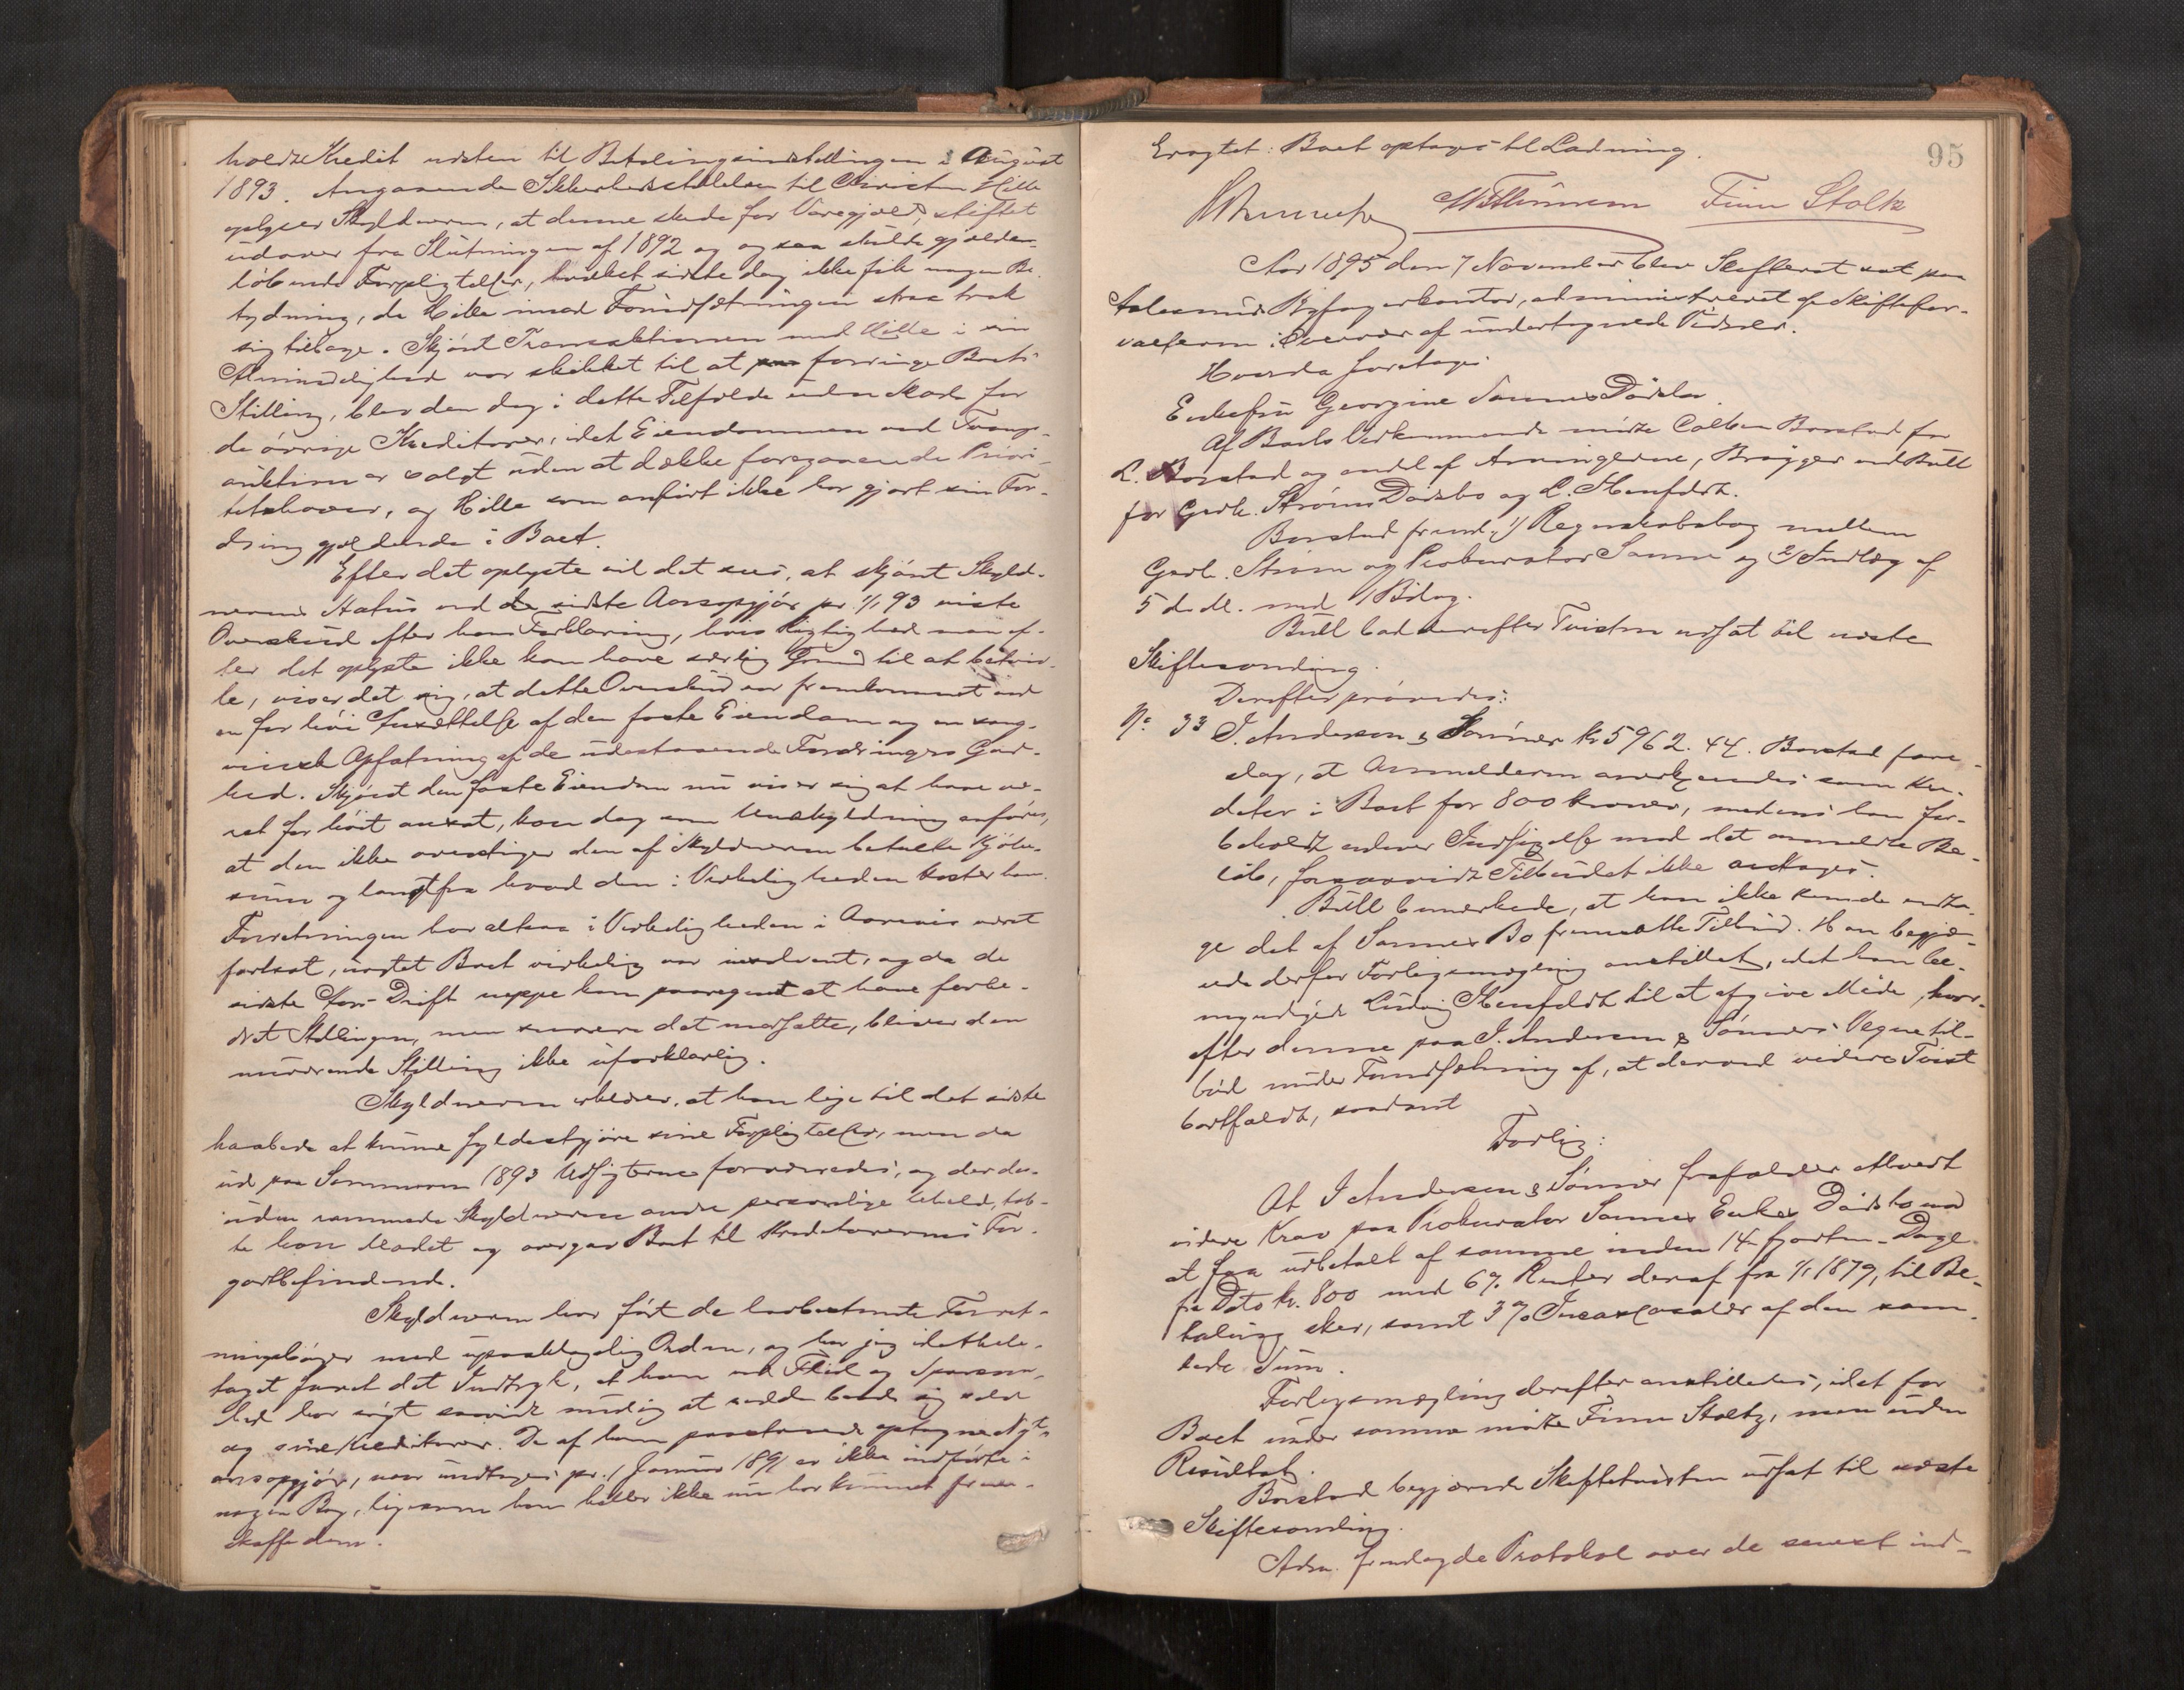 holdt Kredit udsten til Betalingsindstillingen i August
1893. Angaaende Sikkerhedsstillelsen til Christen Hille
oplyser Skyldneren, at denne skede for Varegjæld, stiftet
udover fra Slutningen af 1892 og ogsaa skulde gjælde
løbende Forpligtelser, hvilket sidste dog ikke fik nogen Be-
tydning, da Hille imod Forudsætningen straa trak
sig tilbage. Skjønt Transaktionen med Hille i sin
Almindelighed var skikket til at forringe Boets
Stilling, blev den dog i dette Tilfælde uden Skade for
de øvrige Kreditorer, idet Eiendommen ved Tvangs-
auktion er solgt uden at dække foregaaende Priori-
tetshaver, og Hille som anført ikke har gjort sin For-
dring gjældende i Boet.
Efter det oplyste vil det sees, at skjønt Skyld-
nerens Status ved de sidste Aarsopgjør pr 1/1 93 viste
Overskud efter hans Forklaring, hvis Rigtighed man ef-
ter det oplyste ikke kan have særlig Grund til at betviv-
le, viser det sig, at dette Overskud var fremkommet ved
en for høi Ansættelse af den faste Eiendom og en sang-
vinsk Opfatning af de udestaaende Fordringers God-
hed. Skjønt den faste Eiendom nu viser sig at have væ-
ret for høit ansat, kan dog som Undskyldning anføres,
at den ikke overstiger den af Skyldneren betalte Kjøbe-
sum og langtfra hvad den i Virkeligheden koster ham.
Forretningen har altsaa i Virkeligheden i Aarevis været
fortsat, uagtet Boet virkelig var insolvent, og da de
sidste Aars Drift neppe kan paaregnes at have forbe-
dret Stillingen, men snarere det modsatte, bliver den
nuværende Stilling ikke uforklarlig.
Skyldneren erklærer, at han lige til det sidste
haabede at kunne fyldestgjøre sine Forpligtelser, men da
ud paa Sommeren 1893 Udsigterne forværredes, og der des-
uden rammede Skyldneren andre personlige Uheld, tab-
te han Modet og overgav Boet til Kreditorernes For-
godtbefindende.
Skyldneren har ført de lovbestemte Forret-
ningsbøger med upaaklagelig Orden, og har jeg idethele-
taget faaet det Indtryk, at han ved Flid og Sparsom-
hed har søgt saavidt mulig at redde baade sig selv
og sine Kreditorer. De af ham paastaaede optagne Nyt-
aarsopgjør, naar undtages pr. 1 Januar 1891 er ikke indførte i
nogen Bog, ligesom han heller ikke nu har kunnet frem-
skaffe dem.
95
Eragtet: Boet optages til Ladning.
Finn Stoltz
Aar 1895 den 7 November blev Skifteret sat paa
Aalesunds Byfogedkontor, administreret af Skiftefor-
valteren i Overvær af undertegnede Vidner.
Hvorda foretoges
Enkefru Georgine Sannes Dødsbo.
Af Boets Vedkommende mødte Carsten Borstad for
L. Borstad og endel af Arvingerne, Brøgger ved Bull
for Gerh. Strøms Dødsbo og L. Stenfeldt.
Borstad freml. 1/ Regnskabsbog mellem
Gerh. Strøm og Prokurator Sanne og 2/ Indlæg af
5 ds. Md. med 1 Bilag.
Bull bad derefter Tvisten udsat til næste
Skiftesamling.
Derefter prøvedes:
No. 33 I. Andersen & Sønner kr 5962.44. Borstad fore-
slog, at Anmelderen anerkjendes som Kre-
ditor i Boet for 800 Kroner, medens han for-
beholdt enhver Indsigelse mod det anmeldte Be-
løb, forsaavidt Tilbudet ikke antages.
Bull bemærkede, at han ikke kunde modta-
ge det af Sannes Bo fremsatte Tilbud. Han begjæ-
rede derfor Forligsmægling anstillet, idet han be-
myndigede Ludvig Stenfeldt til at afgive Møde, hvor-
efter denne paa I. Andersen & Sønners Vegne til-
bød under Forudsætning af, at derved videre Tvist
bortfaldt, saadant
Forlig:
At I Andersen & Sønner frafalder ethvert
videre Krav paa Prokurator Sannes Enkes Dødsbo ved
at faa udbetalt af samme inden 14 - fjorten - Dage
fra Dato kr. 800 med 6% Renter deraf fra 1/1 1879, til Be-
taling sker, samt 3% Incassosalær af den sam-
lede Sum.
Forligsmægling derefter anstilledes, idet for
Boet under samme mødte Finn Stoltz, men uden
Resultat.
Borstad begjærede Skiftetvisten udsat til næste
Skiftesamling.
Adm. fremlagde Protokol over de senest ind-